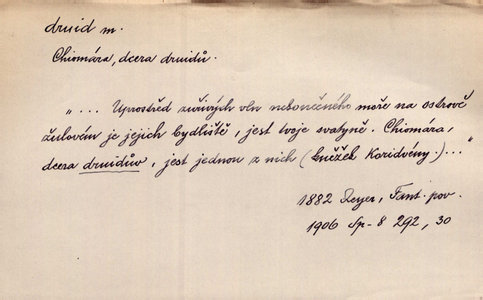 druid m.
Chiomára, dcera druidů.
"... Uprostřed zuřivých vln nekonečného moře na ostrově
žulovém je jejich bydliště, jest tvoje svatyně. Chiomára,
dcera druidův, jest jednou z nich (kněžek Koridvény.)..."
1882 Zeyer, Fant. pov.
1906 Sp-8 292, 30